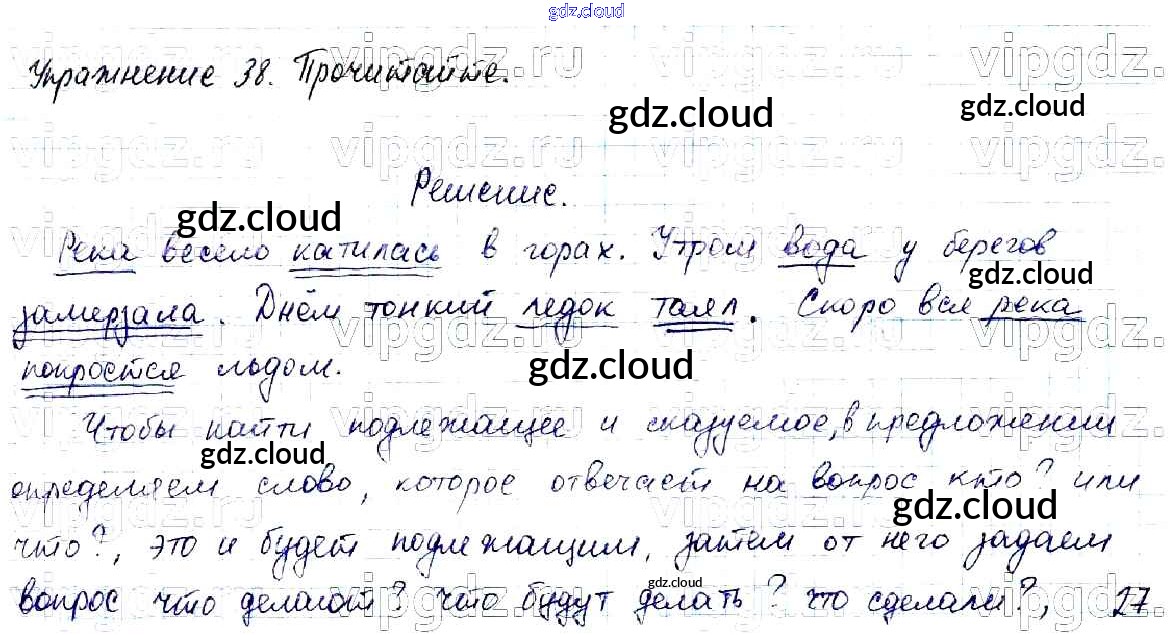 gdz.cloud
Упражнение 38. Прочитайте.
Решение.
Река весело катилась в горах. Утром вода у берегов
замерзала. Днём тонкий ледок таял. Скоро вся река
покроется льдом.
Чтобы найти подлежащее и сказуемое, в предложении
определяем слово, которое отвечает на вопрос кто? или
что?, это и будет подлежащим, затем от него задаем
вопрос что делают? что будут делать? что сделали?, 27